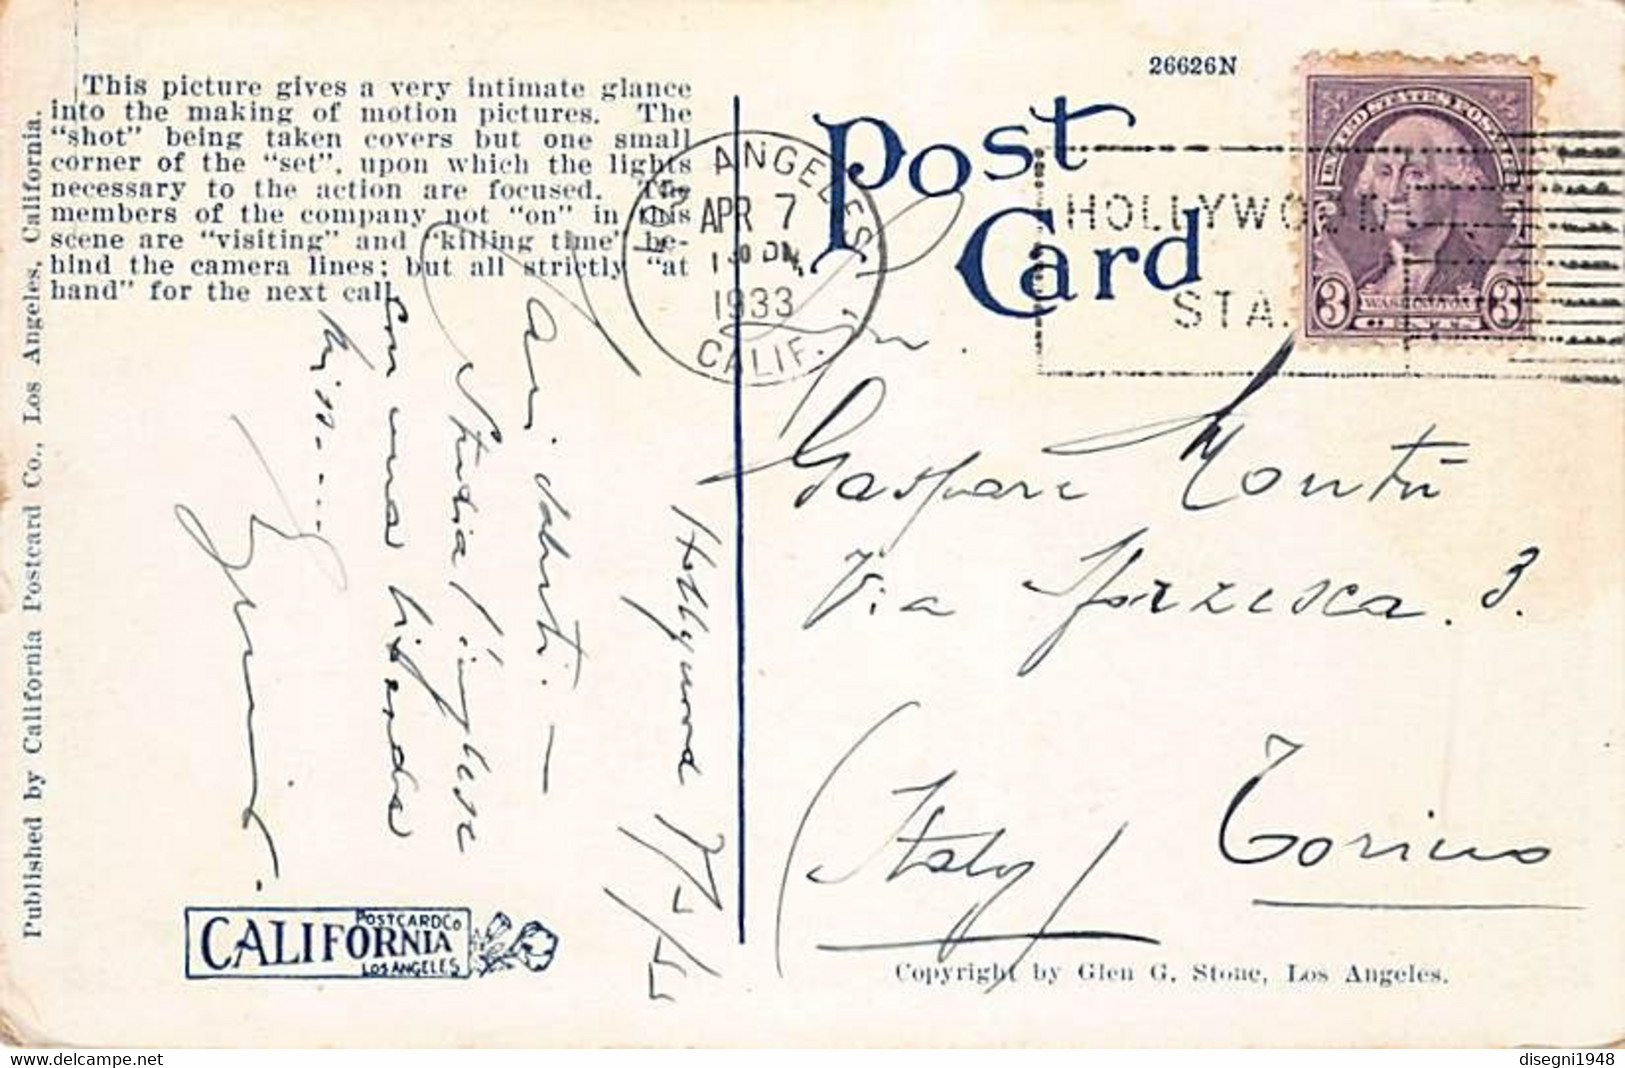 26626N
Post
Card
This picture gives a very intimate glance
into the making of motion pictures. The
"shot" being taken covers but one small
corner of the "set", upon which the lights
necessary to the action are focused. The
members of the company not "on" in this
scene are "visiting" and "killing time" be-
hind the camera lines; but all strictly "at
hand" for the next call.
Published by California Postcard Co., Los Angeles, California.
LOS ANGELES
APR 7
1933
CALIF.
HOLLYWOOD
STA.
UNITED STATES POSTAGE
3 WASHINGTON 3
Hollywood
Cari saluti. —
Studia l'inglese
con una bionda
Miss....
Gaspare Montù
Via Sforzesca. 3.
Torino
(Italy)
CALIFORNIA
POSTCARD Co
LOS ANGELES
Copyright by Glen G. Stone, Los Angeles.
disegni1948